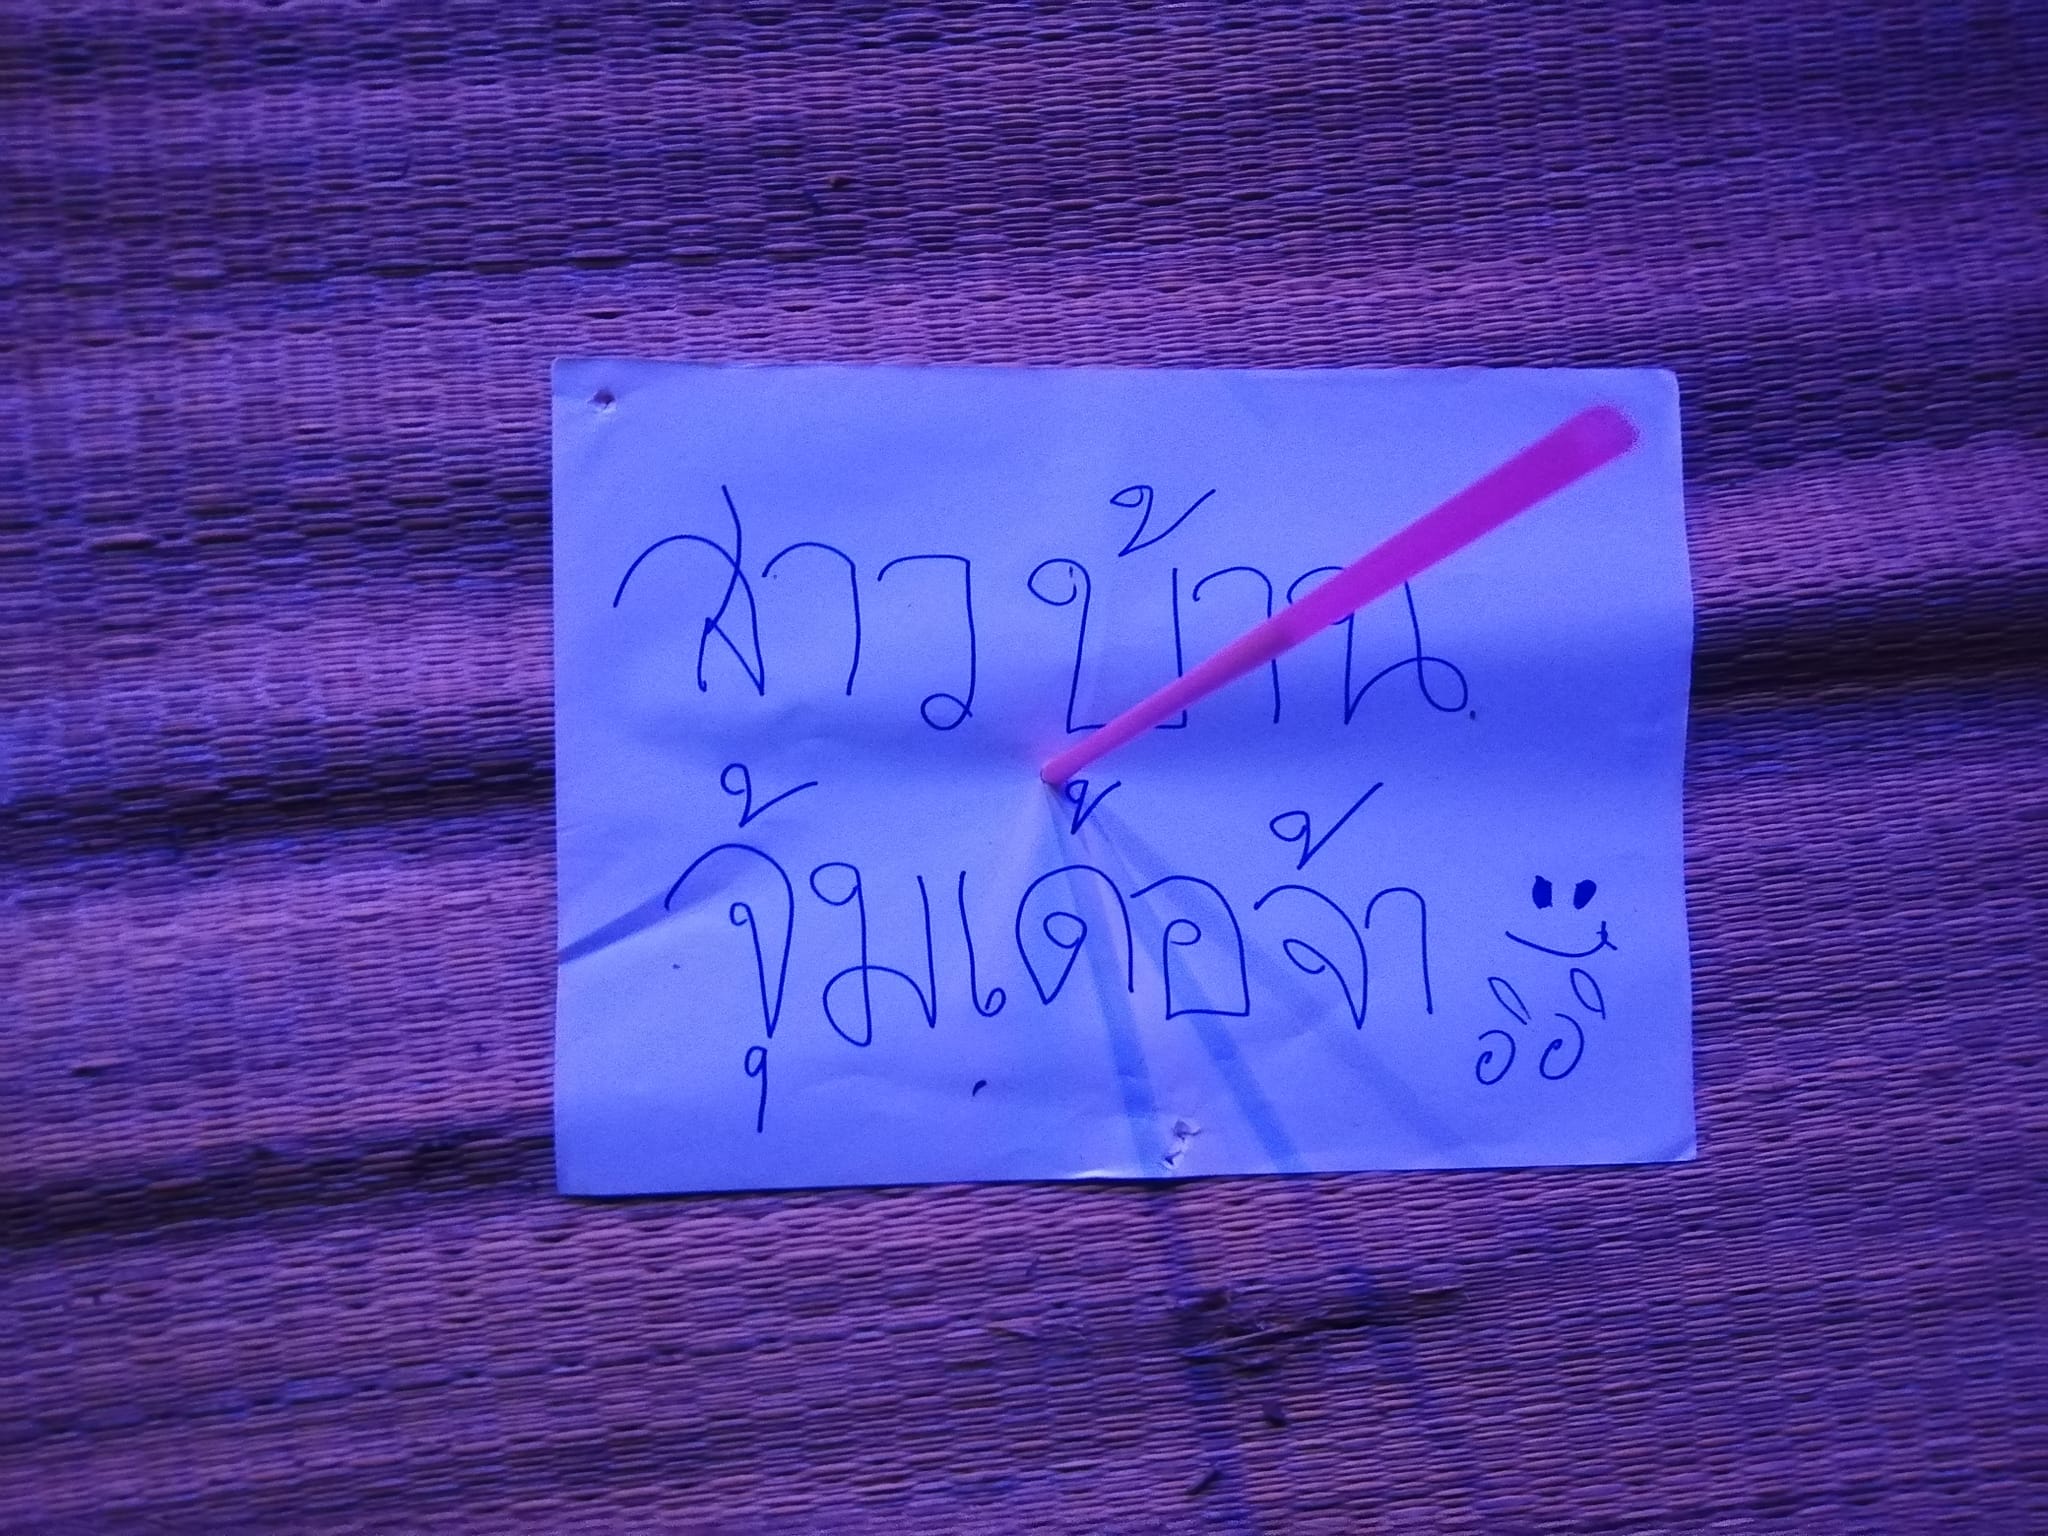 สาวบ้าน
จุ้มเด้อจ้า
อิอิ